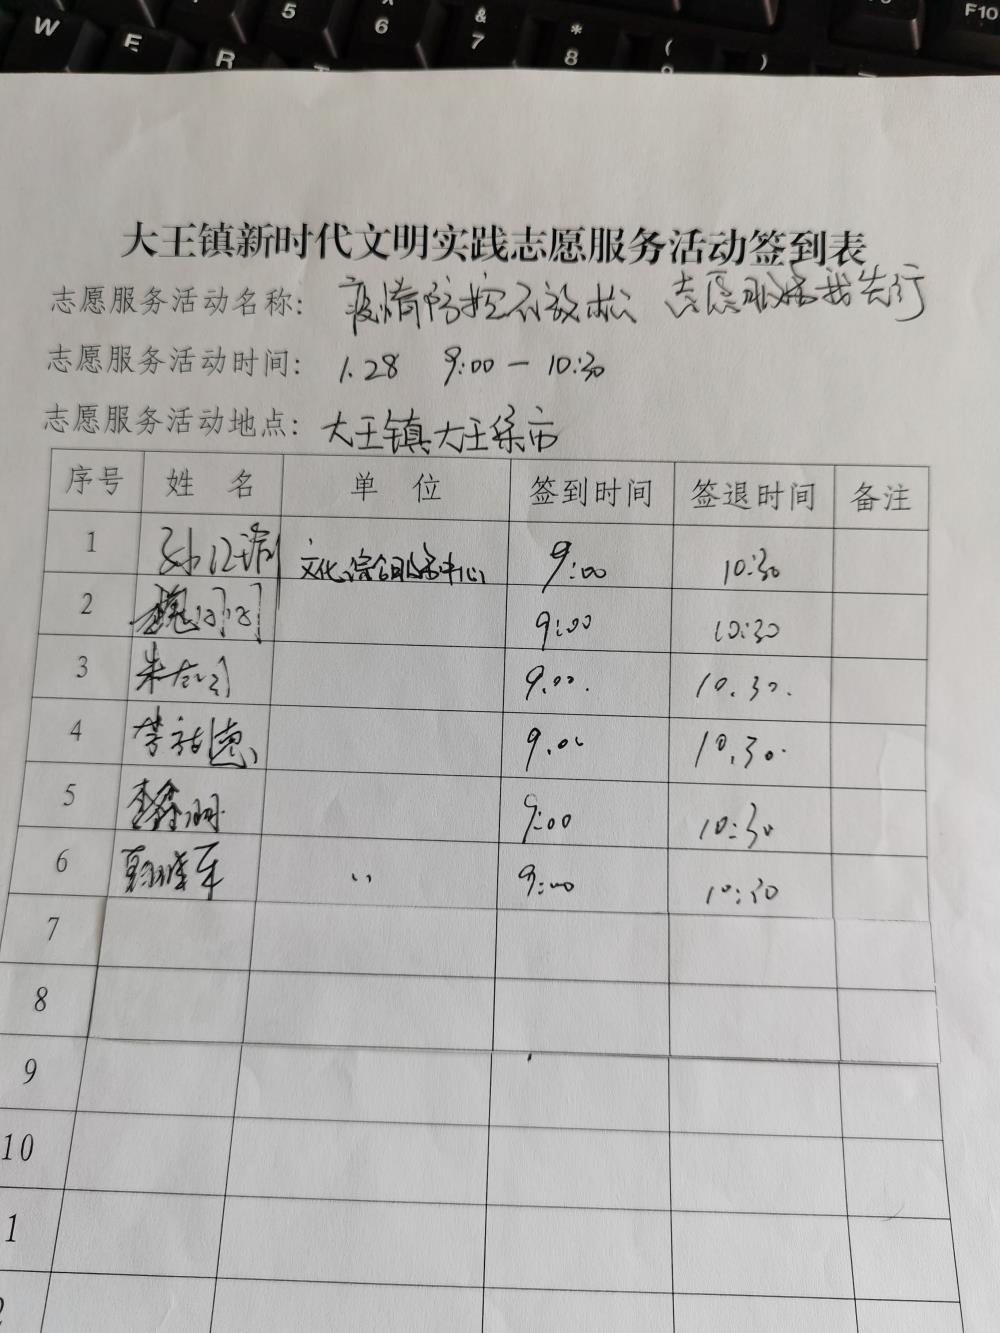 W E R 5 & 7 6 * 8 ( ) F10
大王镇新时代文明实践志愿服务活动签到表
志愿服务活动名称: 疫情防控不放松 志愿服务我先行
志愿服务活动时间: 1.28 9:00 — 10:30
志愿服务活动地点: 大王镇大王集市
序号 姓 名 单 位 签到时间 签退时间 备注
1 文化综合服务中心 9:00 10:30
2 9:00 10:30
3 9.00. 10.30.
4 9.00 10.30.
5 9:00 10:30
6 〃 9:00 10:30
7
8
9
10
1
2